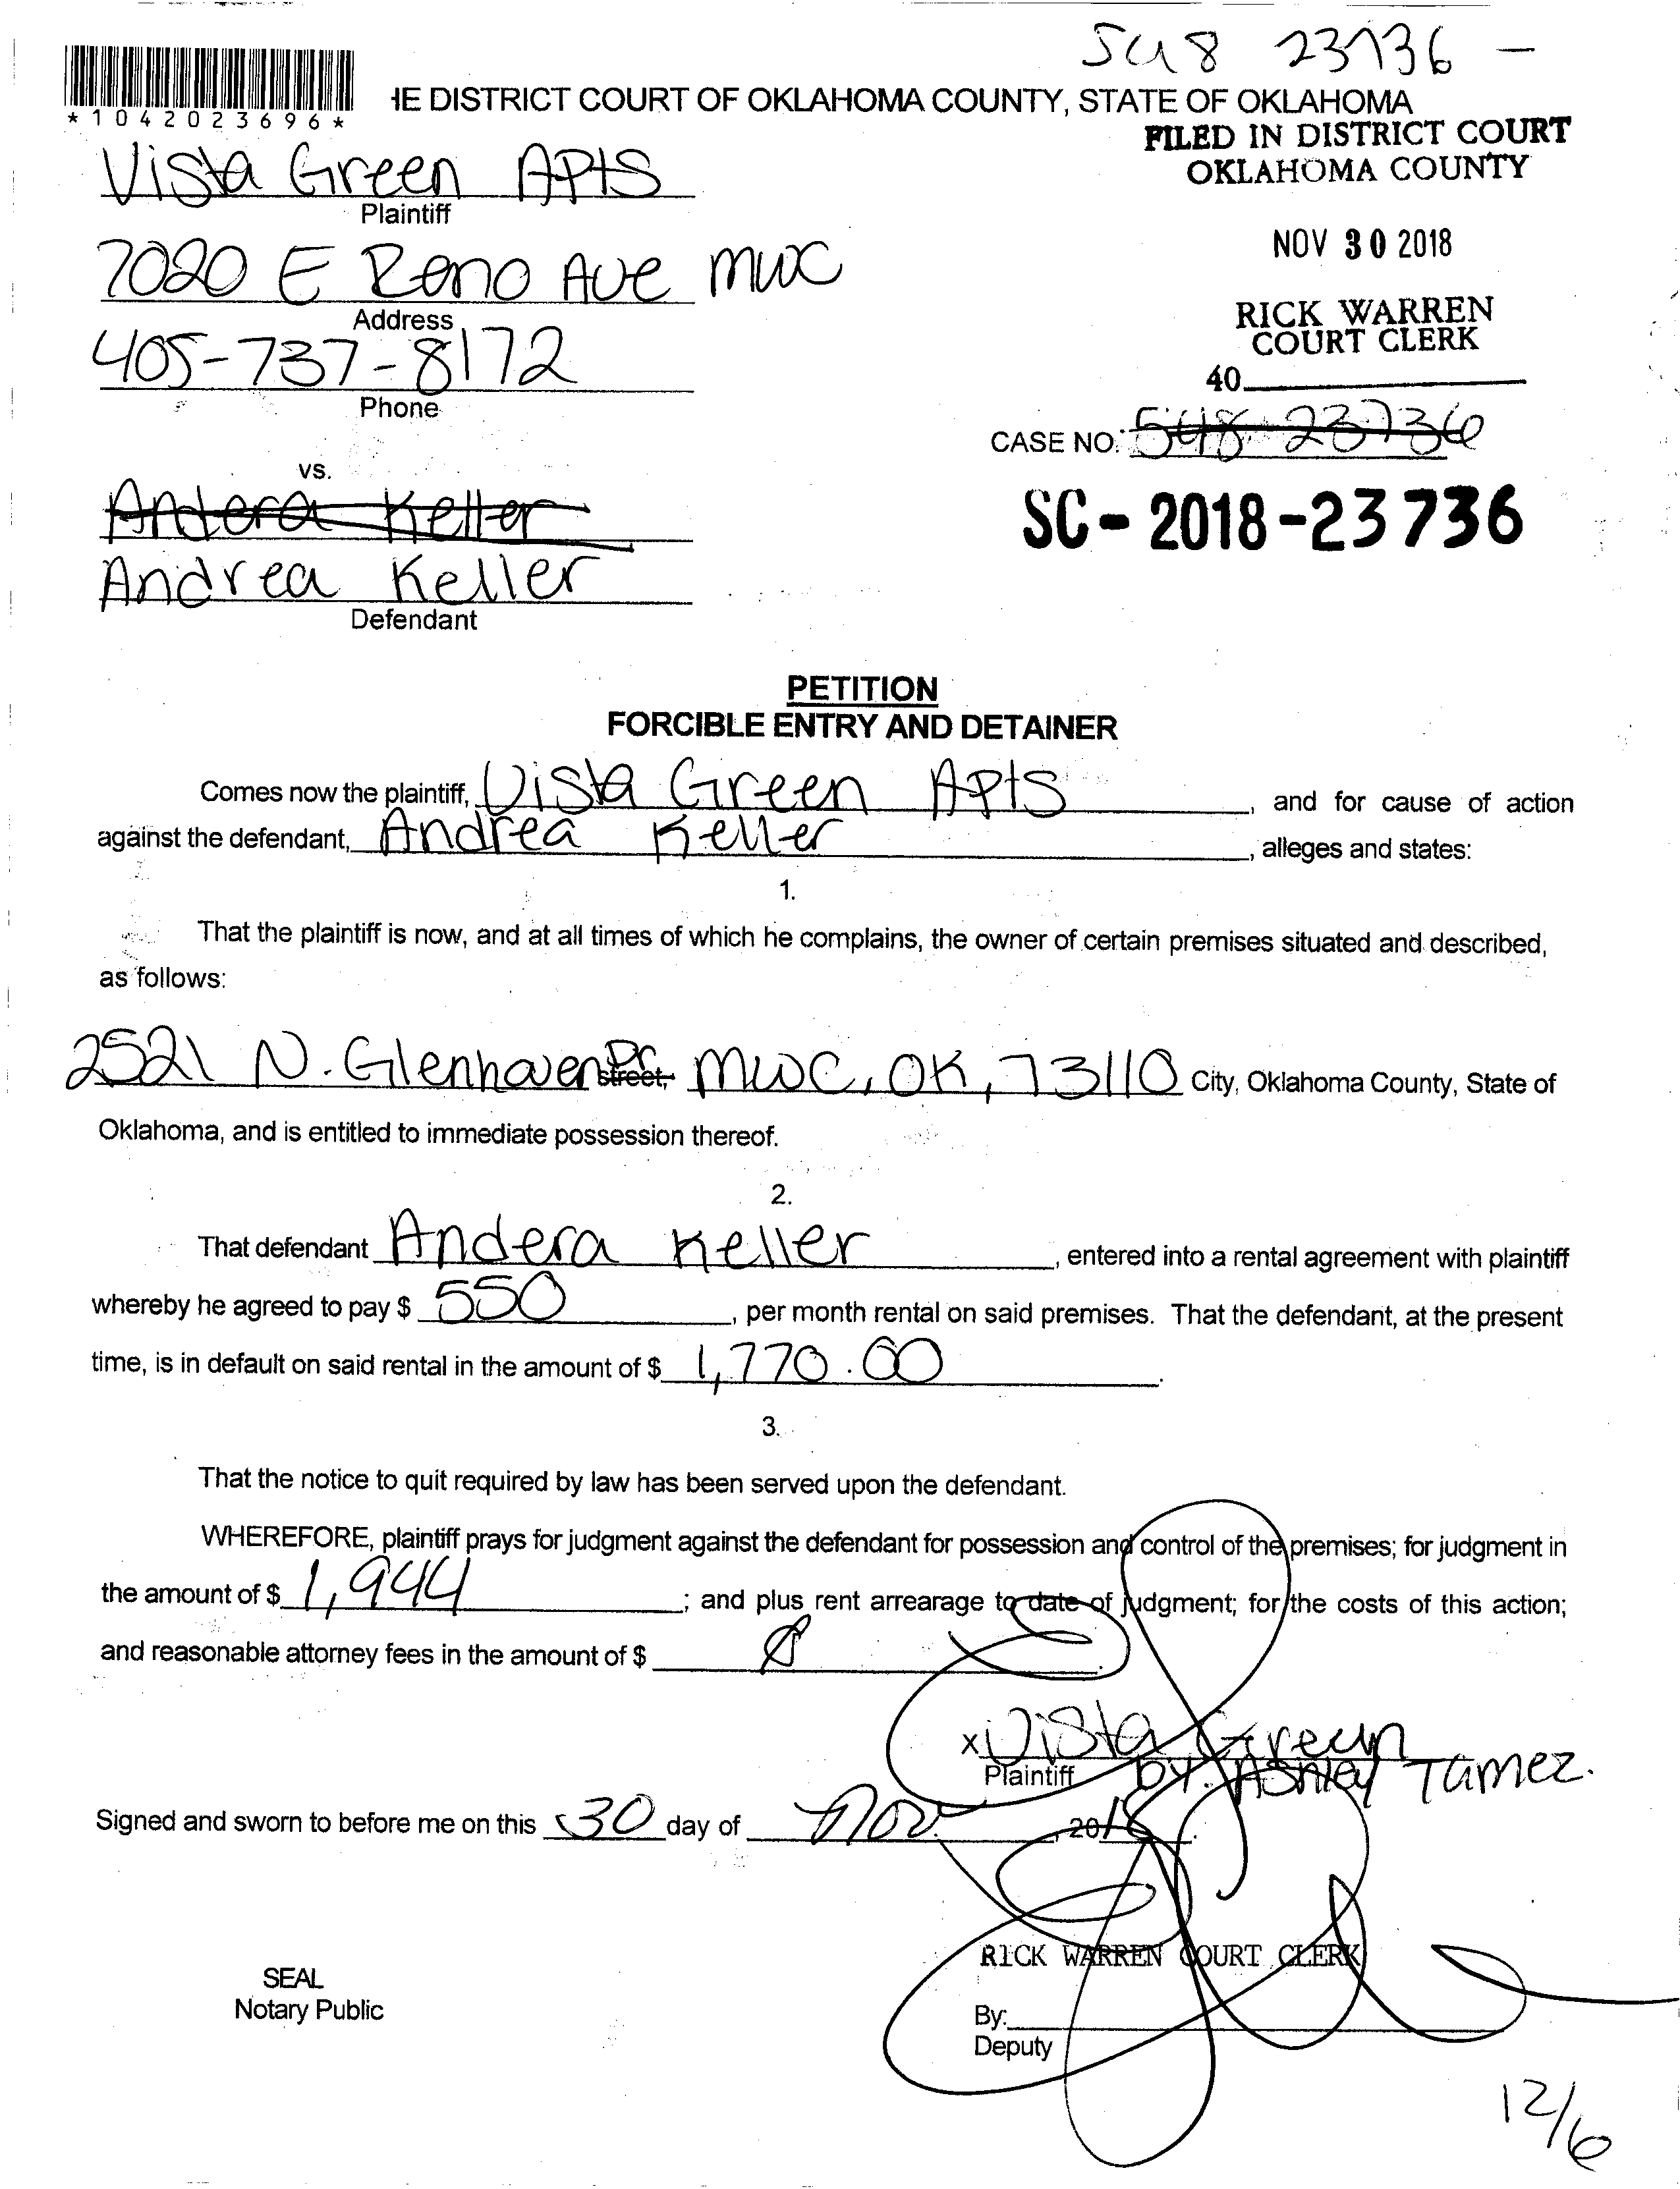 SC18 23736 -
*1042023696*
HE DISTRICT COURT OF OKLAHOMA COUNTY, STATE OF OKLAHOMA
FILED IN DISTRICT COURT
OKLAHOMA COUNTY
Vista Green Apts
Plaintiff
NOV 30 2018
7020 E Reno Ave MWC
Address
RICK WARREN
COURT CLERK
405-737-8172
Phone
40
CASE NO. 23736
vs.
Andera Keller
SC-2018-23736
Andrea Keller
Defendant
PETITION
FORCIBLE ENTRY AND DETAINER
Comes now the plaintiff, Vista Green Apts, and for cause of action
against the defendant, Andrea Keller, alleges and states:
1.
That the plaintiff is now, and at all times of which he complains, the owner of certain premises situated and described,
as follows:
2521 N. Glenhaven Dr street, MWC, OK, 73110 City, Oklahoma County, State of
Oklahoma, and is entitled to immediate possession thereof.
2.
That defendant Andera Keller, entered into a rental agreement with plaintiff
whereby he agreed to pay $ 550, per month rental on said premises. That the defendant, at the present
time, is in default on said rental in the amount of $ 1,770.00.
3.
That the notice to quit required by law has been served upon the defendant.
WHEREFORE, plaintiff prays for judgment against the defendant for possession and control of the premises; for judgment in
the amount of $ 1,944; and plus rent arrearage to date of judgment; for the costs of this action;
and reasonable attorney fees in the amount of $
x Vista Green
Plaintiff by. Ashley Tamez.
Signed and sworn to before me on this 30 day of Nov., 2018.
RICK WARREN COURT CLERK
SEAL
Notary Public
By:
Deputy
12/6